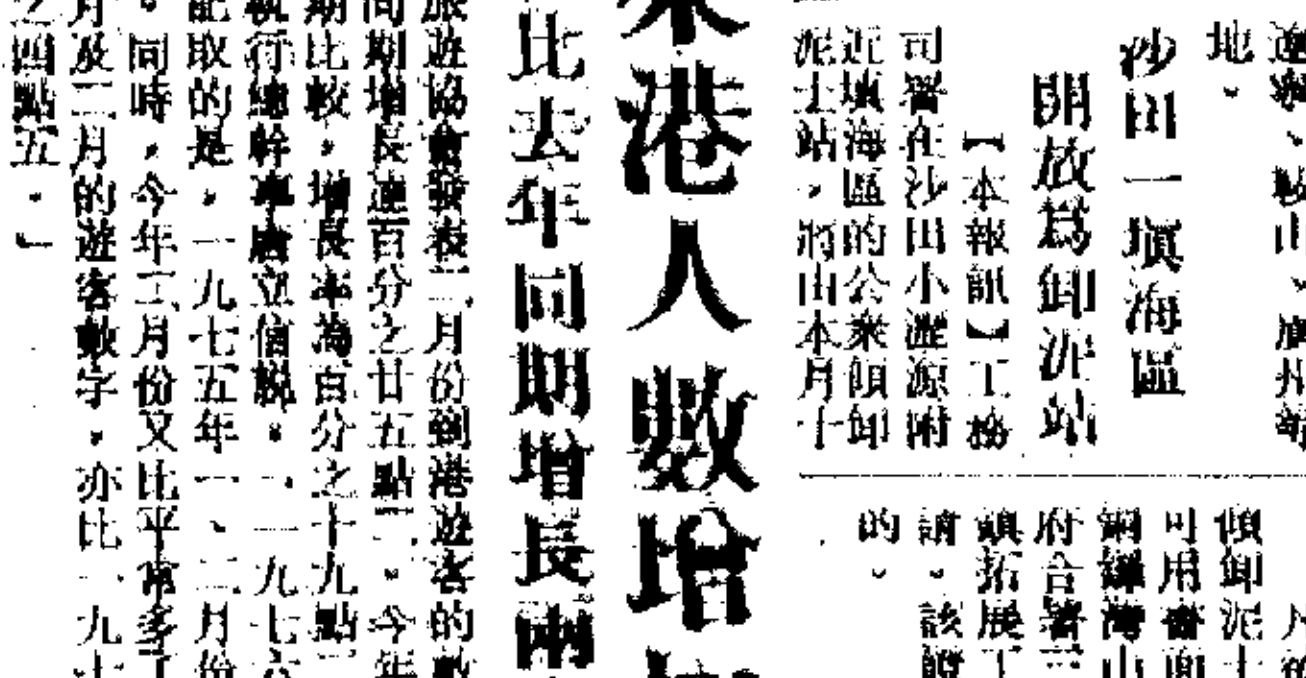 地。
沙田一塡海區
開放爲卸泥站
【本報訊】工務
司署在沙田小瀝源附
近填海區的公衆傾卸
泥土站,將由本月十
傾卸泥土
可用
銅鑼灣山
府合署三
拓展工
請。該
的。
來港人數增加
比去年同期增長兩
旅遊協會發表二月份到港遊客的數
同期增長達百分之廿五點二。今年
期比較,增長率為百分之十九點
執行總幹事唐立信說。「一九七六
記取的是,一九七五年一、二月份
。同時,今年二月份又比平常多了
月及二月的遊客數字,亦比一九七
之四點五。」